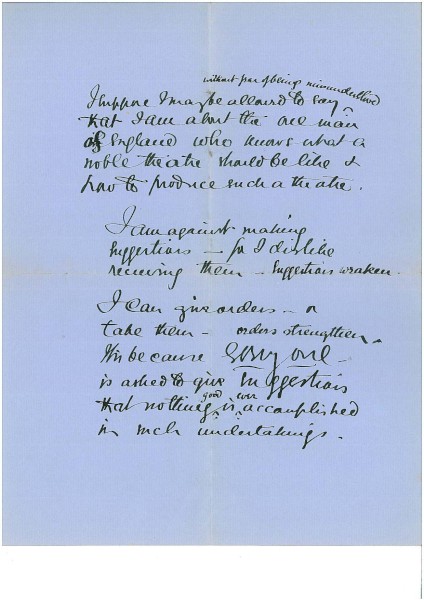 without fear of being misunderstood
I suppose I may be allowed to say
that I am about the one man
of England who knows what a
noble theatre should be like &
how to produce such a theatre.
I am against making
suggestions – for I dislike
receiving them – suggestions weaken.
I can give orders – or
take them – orders strengthen –
It is because Every one –
is asked to give suggestions
good ever
that nothing is accomplished
in such undertakings.